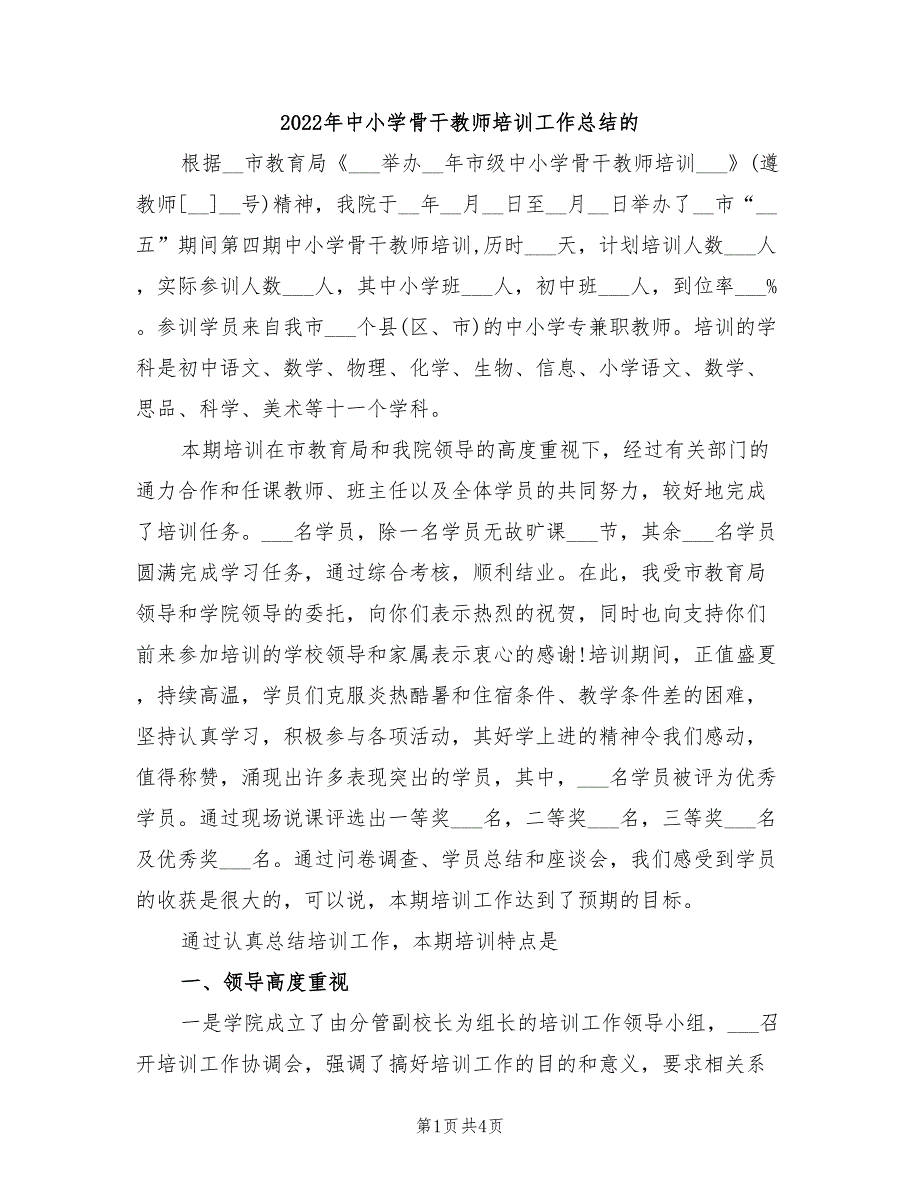 2022年中小学骨干教师培训工作总结的
根据__市教育局《___举办__年市级中小学骨干教师培训___》(遵
教师[__]__号)精神，我院于__年__月__日至__月__日举办了__市“__
五”期间第四期中小学骨干教师培训,历时___天，计划培训人数___人
，实际参训人数___人，其中小学班___人，初中班___人，到位率___%
。参训学员来自我市___个县(区、市)的中小学专兼职教师。培训的学
科是初中语文、数学、物理、化学、生物、信息、小学语文、数学、
思品、科学、美术等十一个学科。
本期培训在市教育局和我院领导的高度重视下，经过有关部门的
通力合作和任课教师、班主任以及全体学员的共同努力，较好地完成
了培训任务。___名学员，除一名学员无故旷课___节，其余___名学员
圆满完成学习任务，通过综合考核，顺利结业。在此，我受市教育局
领导和学院领导的委托，向你们表示热烈的祝贺，同时也向支持你们
前来参加培训的学校领导和家属表示衷心的感谢!培训期间，正值盛夏
，持续高温，学员们克服炎热酷暑和住宿条件、教学条件差的困难，
坚持认真学习，积极参与各项活动，其好学上进的精神令我们感动，
值得称赞，涌现出许多表现突出的学员，其中，___名学员被评为优秀
学员。通过现场说课评选出一等奖___名，二等奖___名，三等奖___名
及优秀奖___名。通过问卷调查、学员总结和座谈会，我们感受到学员
的收获是很大的，可以说，本期培训工作达到了预期的目标。
通过认真总结培训工作，本期培训特点是
一、领导高度重视
一是学院成立了由分管副校长为组长的培训工作领导小组，___召
开培训工作协调会，强调了搞好培训工作的目的和意义，要求相关系
第1页共4页